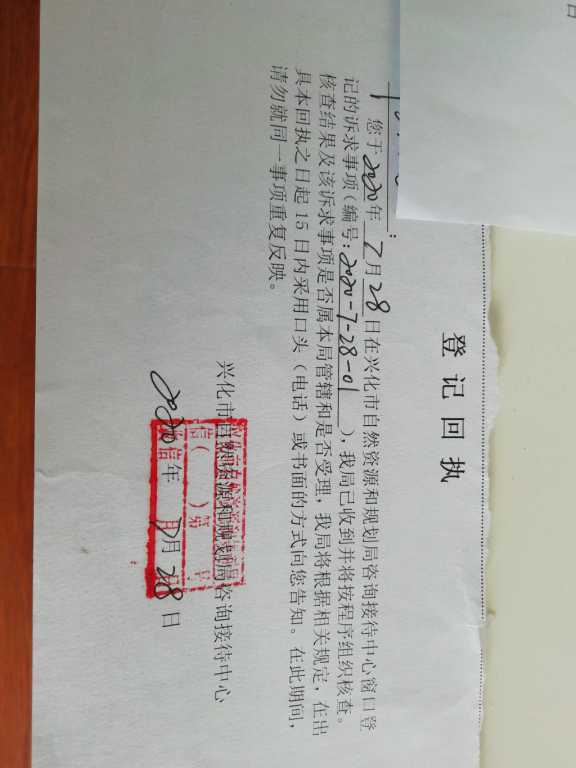 登记回执
:
您于2020年7月28日在兴化市自然资源和规划局咨询接待中心窗口登
记的诉求事项（编号:2020-7-28-01），我局已收到并将按程序组织核查。
核查结果及该诉求事项是否属本局管辖和是否受理，我局将根据相关规定，在出
具本回执之日起15日内采用口头（电话）或书面的方式向您告知。在此期间，
请勿就同一事项重复反映。
兴化市自然资源和规划局咨询接待中心
2020年7月28日